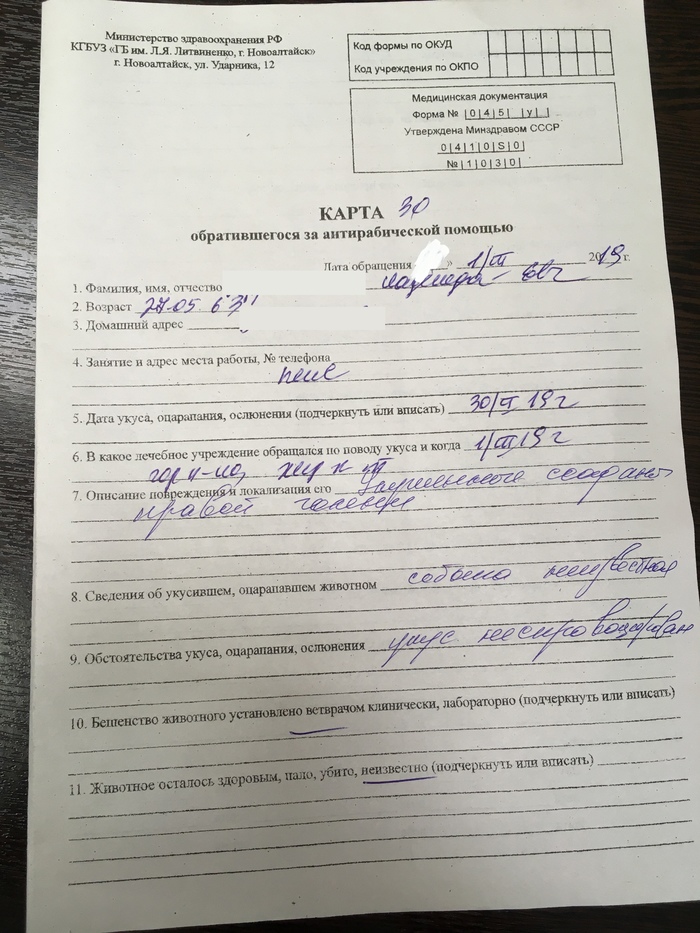 Министерство здравоохранения РФ
КГБУЗ «ГБ им. Л.Я. Литвиненко, г. Новоалтайск»
г. Новоалтайск, ул. Ударника, 12
Код формы по ОКУД
Код учреждения по ОКПО
Медицинская документация
Форма № |0|4|5| |у| |
Утверждена Минздравом СССР
0|4|1|0|S|0|
№|1|0|3|0|
КАРТА 30
обратившегося за антирабической помощью
Дата обращения » 1/III 2019 г.
1. Фамилия, имя, отчество
2. Возраст 27.05.63
3. Домашний адрес
4. Занятие и адрес места работы, № телефона
пенс
5. Дата укуса, оцарапания, ослюнения (подчеркнуть или вписать) 30/ 19 г
6. В какое лечебное учреждение обращался по поводу укуса и когда 1/III 19 г
7. Описание повреждения и локализация его
правой голени
8. Сведения об укусившем, оцарапавшем животном собака неизвестная
9. Обстоятельства укуса, оцарапания, ослюнения укус неспровоцирован
10. Бешенство животного установлено ветврачом клинически, лабораторно (подчеркнуть или вписать)
11. Животное осталось здоровым, пало, убито, неизвестно (подчеркнуть или вписать)